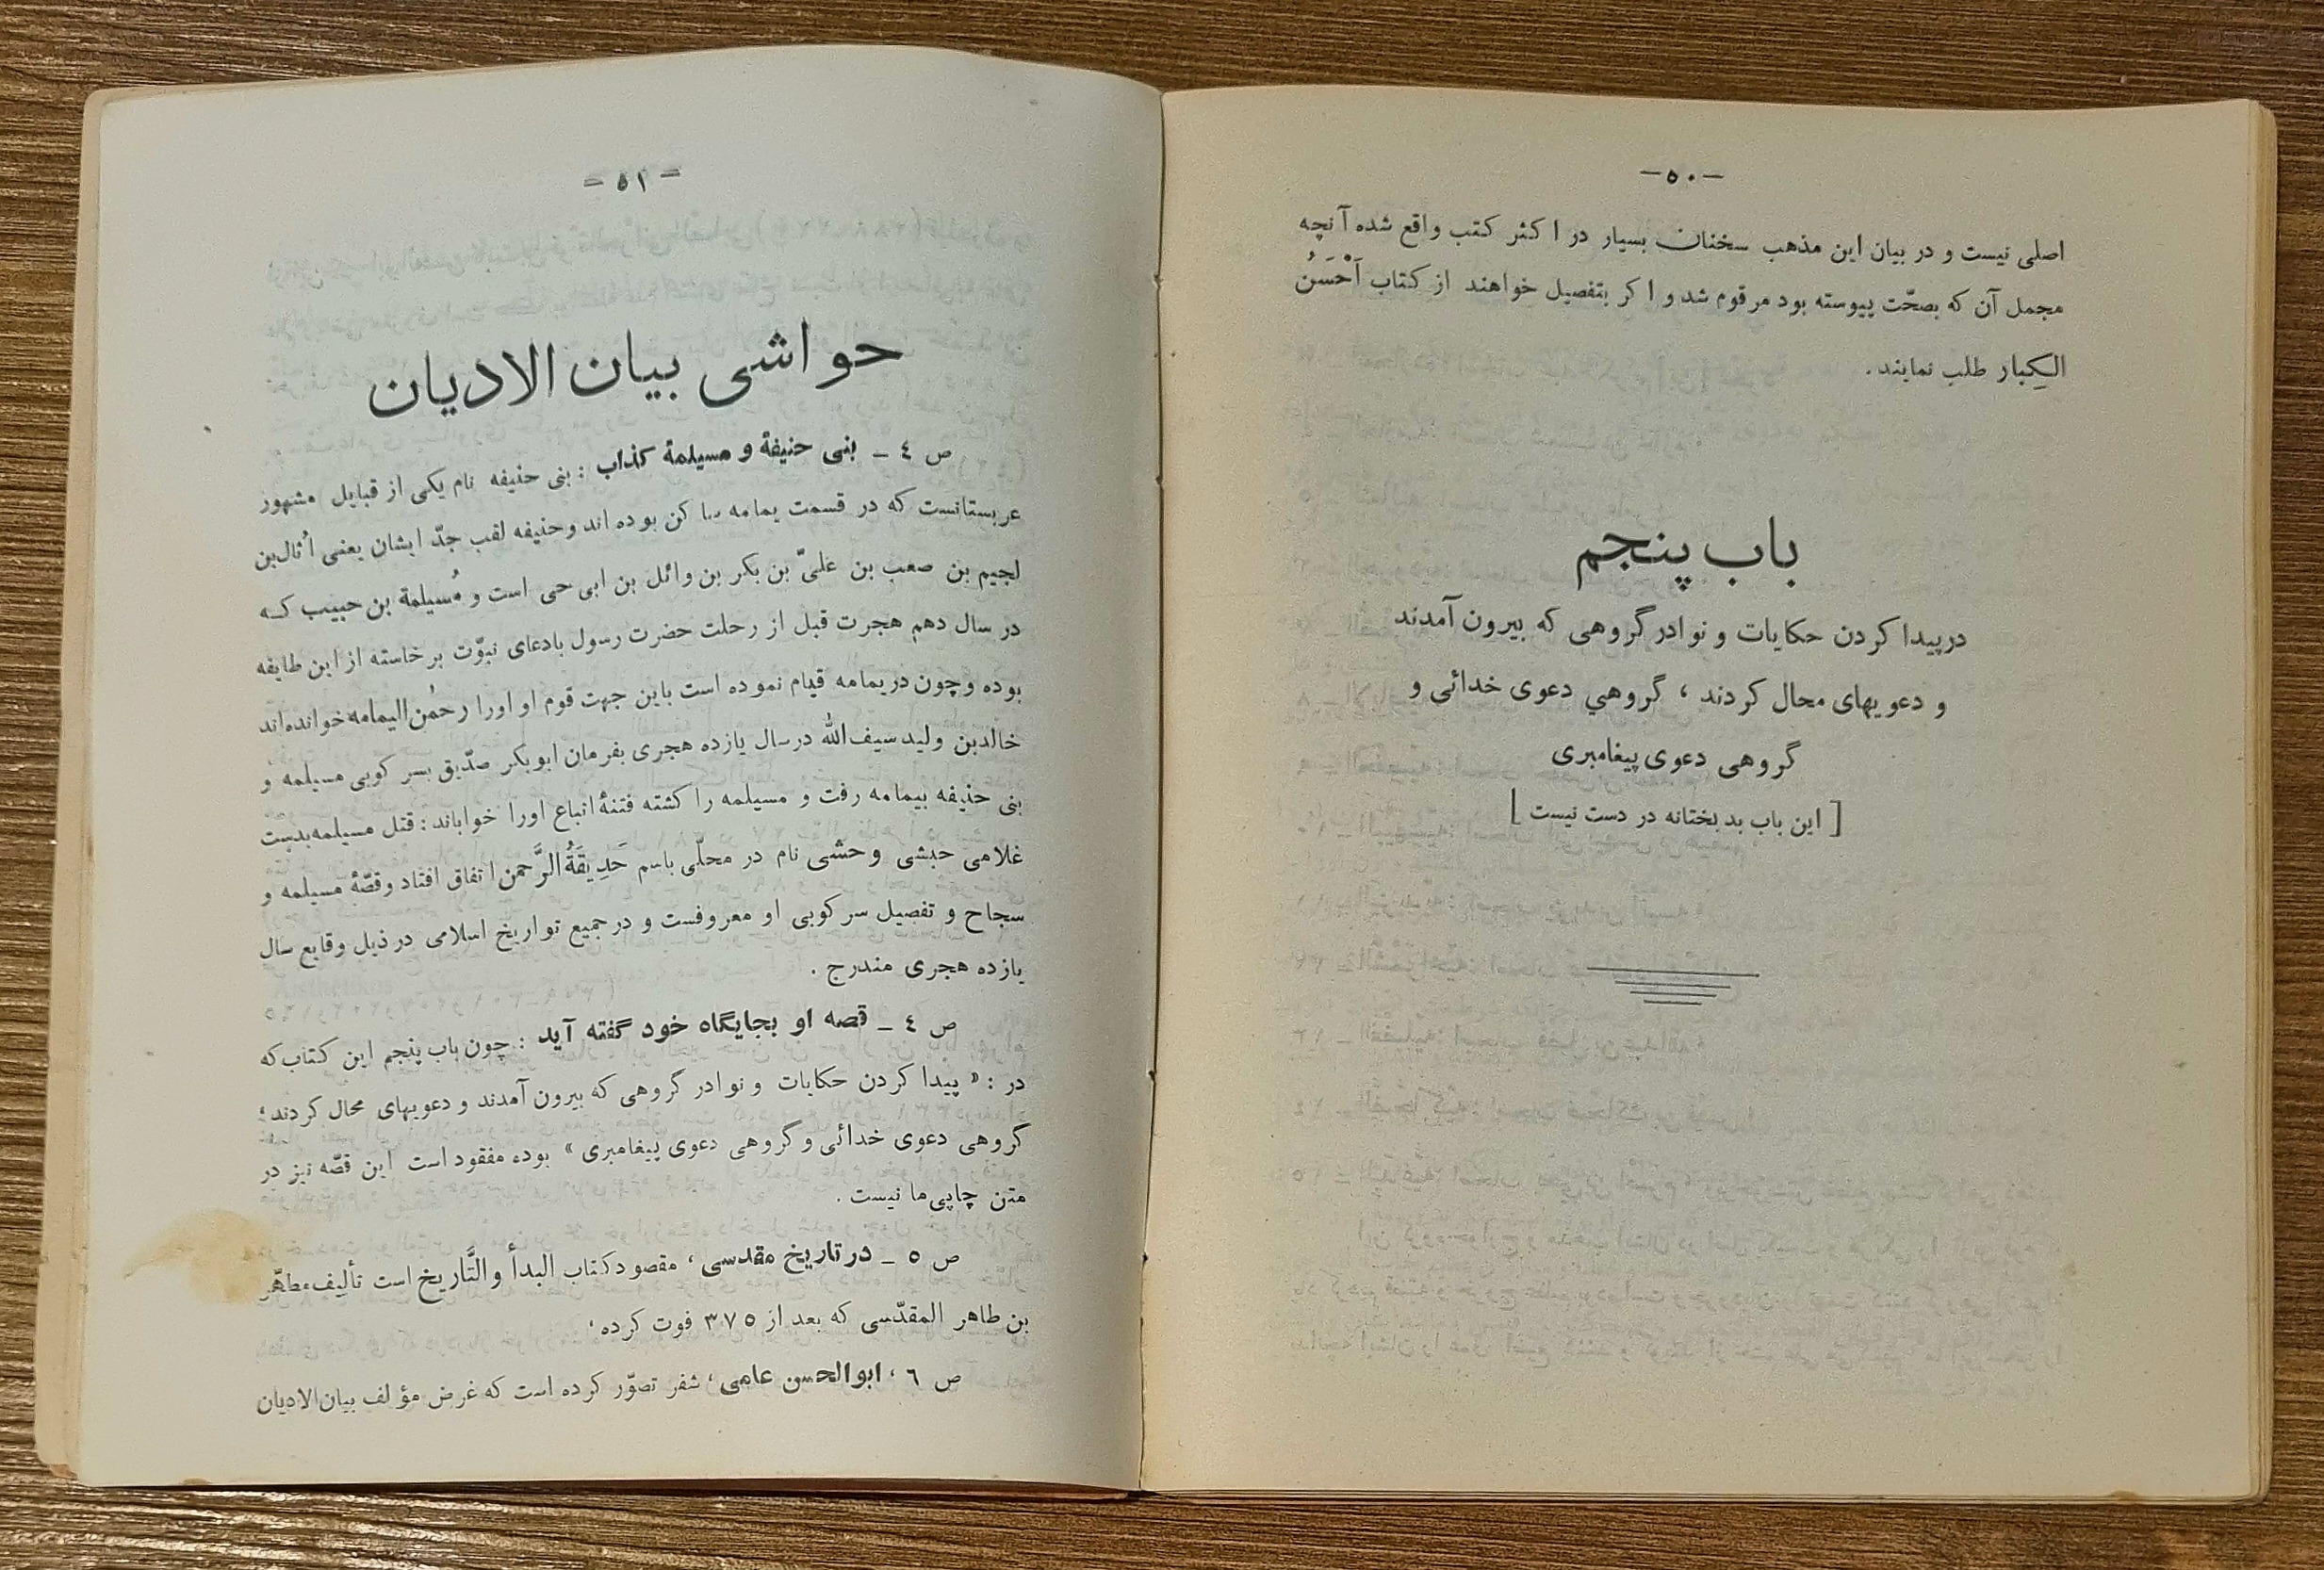 -٥٠-
اصلی نیست و در بیان این مذهب سخنان بسیار در اکثر کتب واقع شده آنچه
مجمل آن که بصحّت پیوسته بود مرقوم شد و اکر بتفصیل خواهند از کتاب اَحْسَنُ
الکِبار طلب نمایند.
باب پنجم
در پیدا کردن حکایات و نوادر گروهی که بیرون آمدند
و دعویهای محال کردند ، گروهي دعوی خدائی و
گروهی دعوی پیغامبری
[ این باب بدبختانه در دست نیست ]
= ٥١ =
حواشی بیان الادیان
ص ٤ ـ بنی حنیفة و مسیلمة کذاب : بنی حنیفه نام یکی از قبایل مشهور
عربستانست که در قسمت یمامه ساکن بوده‌اند و حنیفه لقب جدّ ایشان یعنی اُثال‌بن
لجیم بن صعب بن علیّ بن بکر بن وائل بن ابی حی است و مُسیلمة بن حبیب که
در سال دهم هجرت قبل از رحلت حضرت رسول بادعای نبوّت برخاسته از این طایفه
بوده و چون در یمامه قیام نموده است باین جهت قوم او اورا رحمٰن‌الیمامه خوانده‌اند
خالدبن ولید سیف‌اللّه در سال یازده هجری بفرمان ابوبکر صدّیق بسر کوبی مسیلمه و
بنی حنیفه بیمامه رفت و مسیلمه را کشته فتنهٔ اتباع اورا خواباند : قتل مسیلمه بدست
غلامی حبشی وحشی نام در محلّی باسم حَدِیقَةُ الرَّحمن اتفاق افتاد و قصّهٔ مسیلمه و
سجاح و تفصیل سرکوبی او معروفست و در جمیع تواریخ اسلامی در ذیل وقایع سال
یازده هجری مندرج .
ص ٤ ـ قصه او بجایگاه خود گفته آید : چون باب پنجم این کتاب که
در : « پیدا کردن حکایات و نوادر گروهی که بیرون آمدند و دعویهای محال کردند ،
گروهی دعوی خدائی و گروهی دعوی پیغامبری » بوده مفقود است این قصّه نیز در
متن چاپی ما نیست .
ص ٥ ـ در تاریخ مقدسی ، مقصود کتاب البدأ و التَّاریخ است تألیف مطهّر
بن طاهر المقدّسی که بعد از ٣٧٥ فوت کرده ،
ص ٦ ، ابوالحسن عامی ، شفر تصوّر کرده است که غرض مؤلف بیان‌الادیان